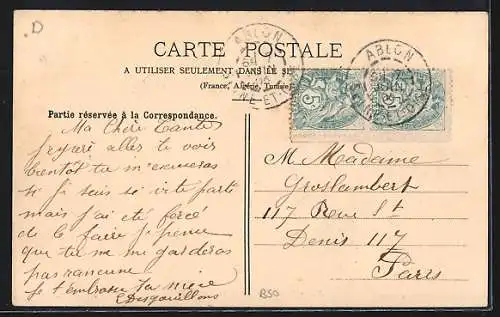 D
CARTE POSTALE
A UTILISER SEULEMENT DANS LE SE
(France, Algérie, Tunisie
ABLON
ABLON
SEINE-ET-OISE
5
5
Partie réservée à la Correspondance.
Ma Chère Tante
j'espère aller te voir
bientôt tu m'excuseras
si je suis si vite parti
mais j'ai été forcé
de le faire je pense
que tu ne me garderas
pas rancune
Je t'embrasse ta nièce
M Madame
Groslambert
117 Rue St
Denis 117
Paris
B50